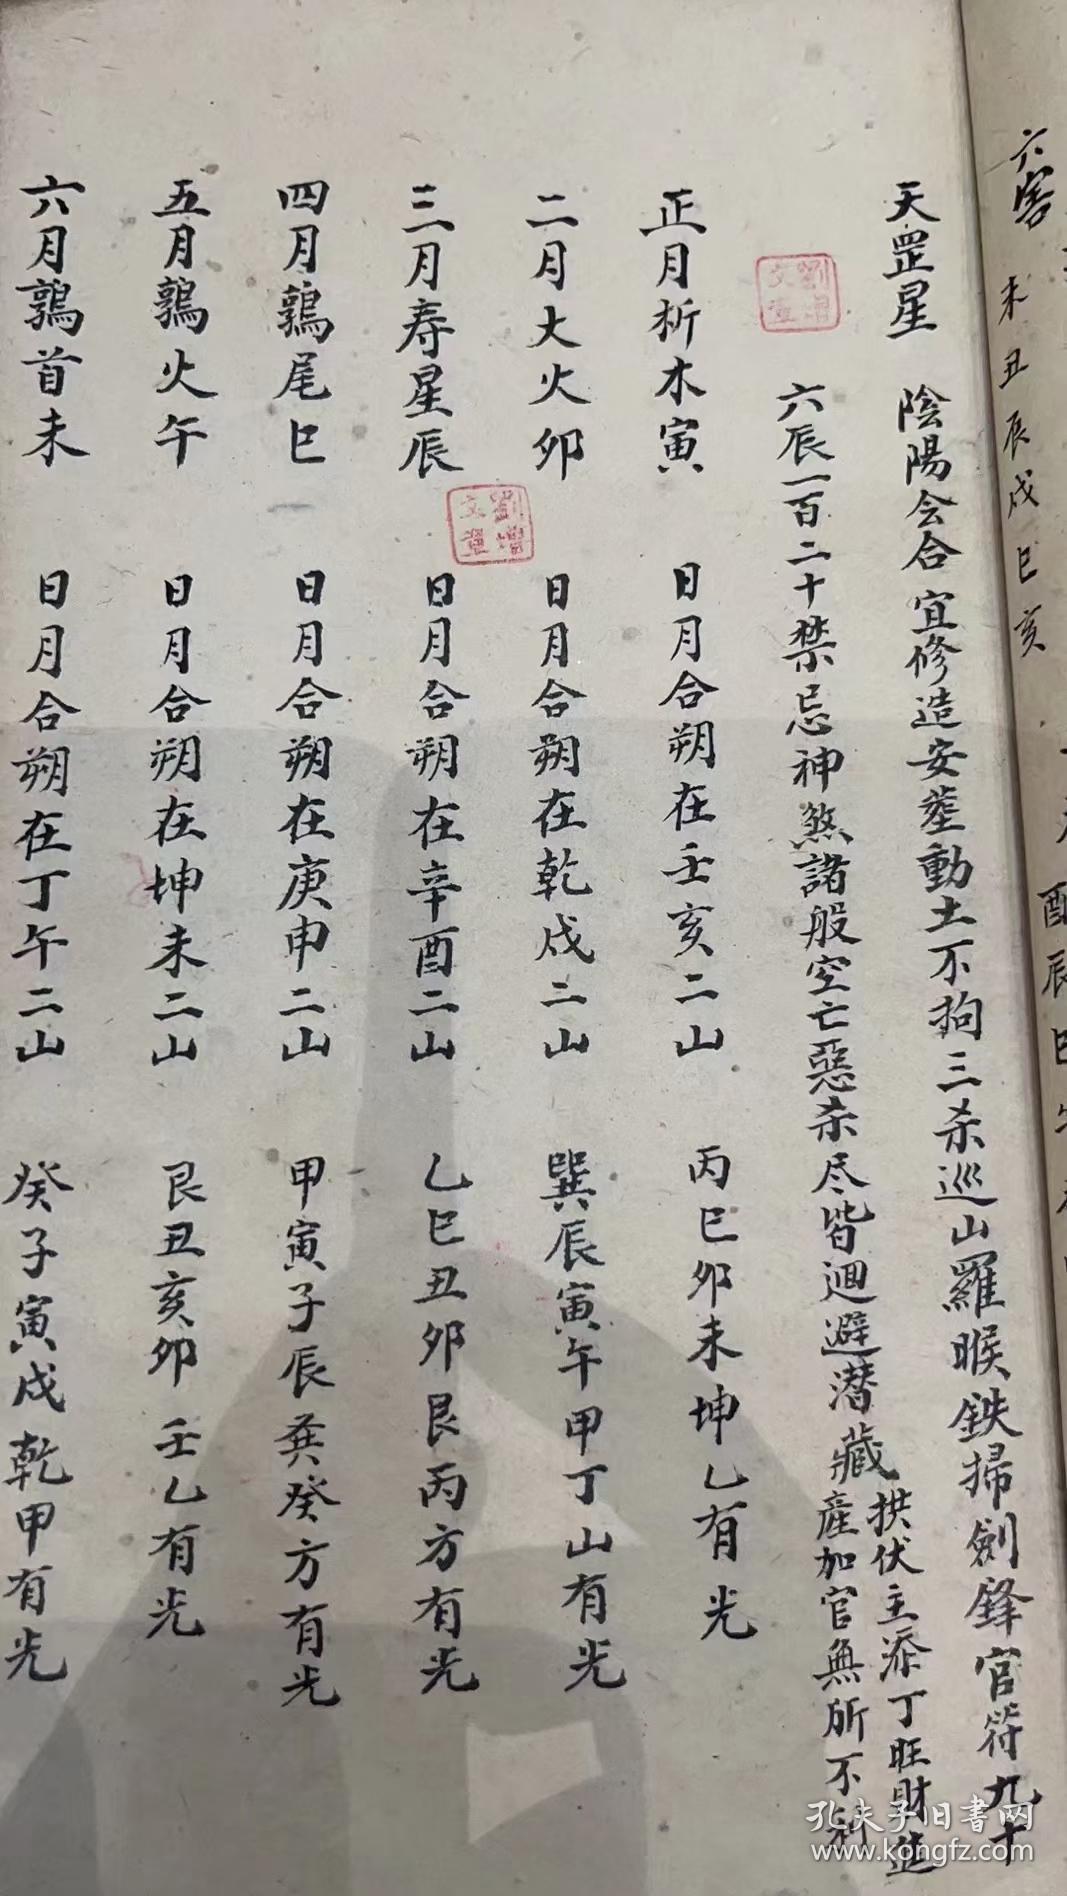 六害 未丑辰戌巳亥
酉辰巳午
天罡星 陰陽会合宜修造安塟動土不拘三杀巡山羅睺鉄掃劍鋒官符九十
六辰一百二十禁忌神煞諸般空亡惡杀尽皆迴避潜藏
拱伏主添丁旺財進
産加官無所不利
正月析木寅 日月合朔在壬亥二山 丙巳卯未坤乙有光
二月大火卯 日月合朔在乾戌二山 巽辰寅午甲丁山有光
三月寿星辰 日月合朔在辛酉二山 乙巳丑卯艮丙方有光
四月鶉尾巳 日月合朔在庚申二山 甲寅子辰癸方有光
五月鶉火午 日月合朔在坤未二山 艮丑亥卯壬乙有光
六月鶉首未 日月合朔在丁午二山 癸子寅戌乾甲有光
孔夫子旧書网
www.kongfz.com